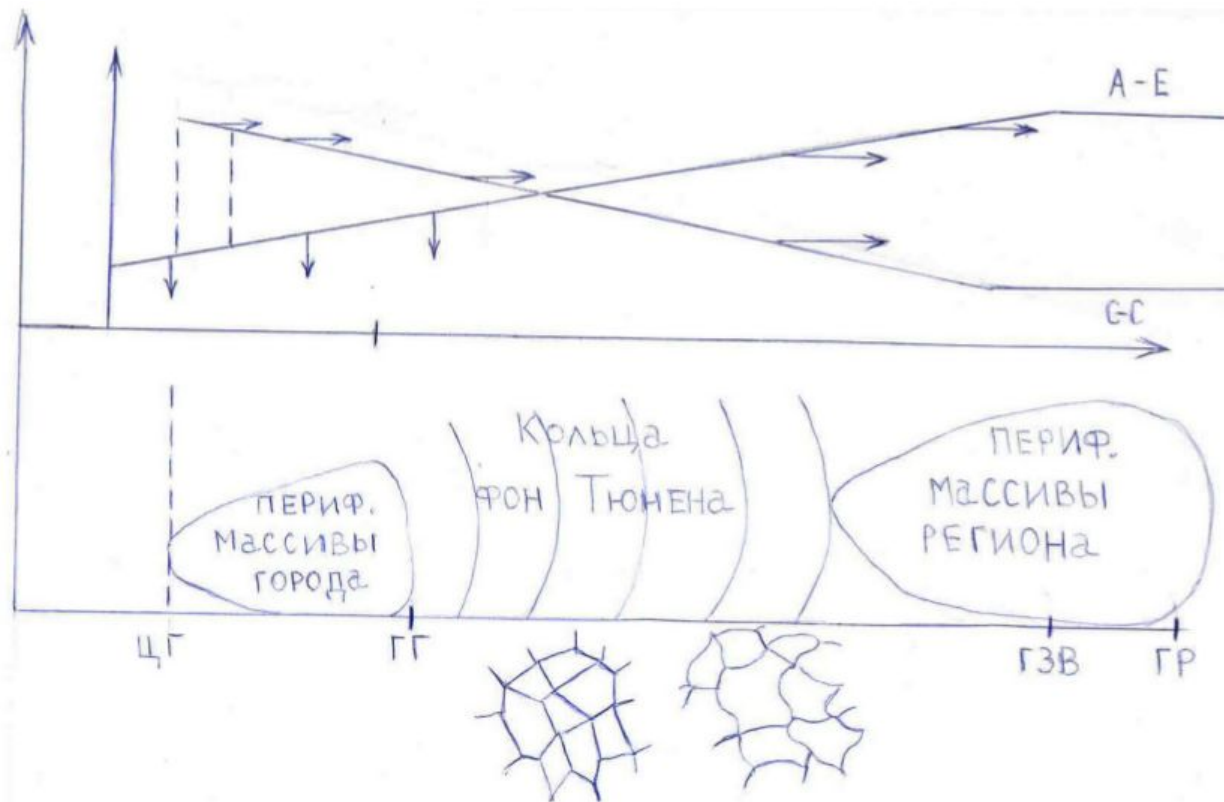 А-Е
С-С
Кольца
фон Тюнена
ПЕРИФ.
МАССИВЫ
ГОРОДА
ПЕРИФ.
МАССИВЫ
РЕГИОНА
ЦГ
ГГ
ГЗВ
ГР